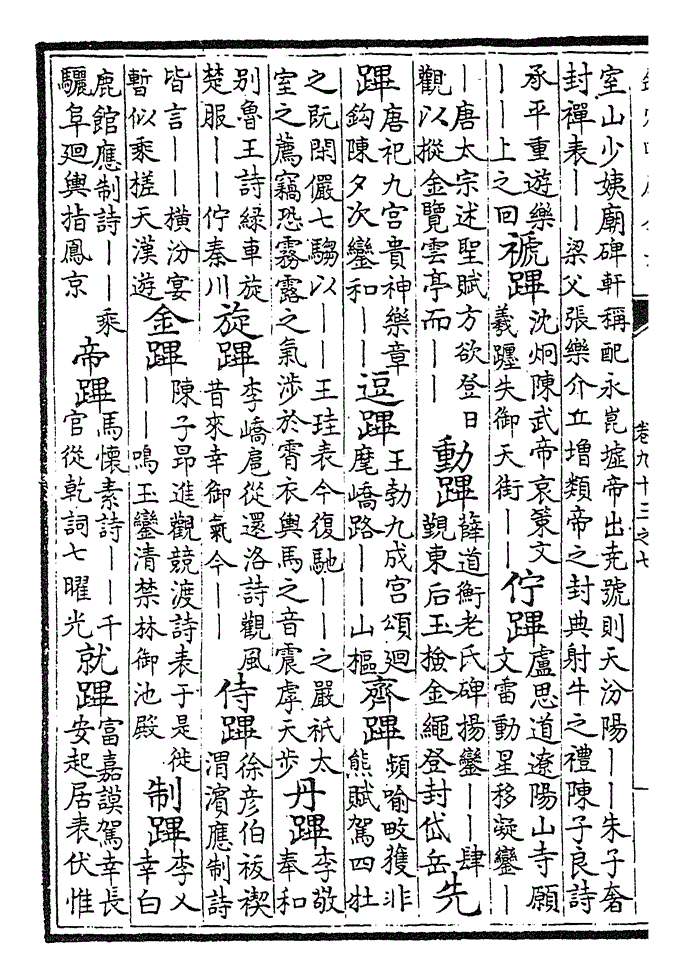 卷九十三之七
室山少姨廟碑軒稱配永崑墟帝出堯號則天汾陽——朱子奢
封禪表——梁父張樂介丘增類帝之封典射牛之禮陳子良詩
承平重遊樂
——上之回
褫蹕
沈炯陳武帝哀策文
羲躔失御天街——
佇蹕
盧思道遼陽山寺願
文雷動星移凝鑾—
—唐太宗述聖賦方欲登日
觀以摐金覽雲亭而——
動蹕
薛道衡老氏碑揚鑾——肆
覲東后玉撿金繩登封岱岳
先
蹕
唐祀九宮貴神樂章
鈎陳夕次鑾和——
逗蹕
王勃九成宮頌迴
麾嶠路——山樞
齊蹕
頻喻畋獲非
熊賦駕四牡
之旣閑儼七騶以——王珪表今復馳——之嚴祇太
室之薦竊恐霧露之氣涉於霄衣輿馬之音震虖天步
丹蹕
李敬
奉和
別魯王詩綠車旋
楚服——佇秦川
旋蹕
李嶠扈從還洛詩觀風
昔來幸御氣今——
侍蹕
徐彦伯祓禊
渭濱應制詩
皆言——橫汾宴
暫似乘槎天漢遊
金蹕
陳子昂進觀競渡詩表于是徙
——鳴玉鑾清禁林御池殿
制蹕
李乂
幸白
鹿館應制詩——乘
驪阜迴輿指鳳京
帝蹕
馬懷素詩——千
官從乾詞七曜光
就蹕
富嘉謨駕幸長
安起居表伏惟